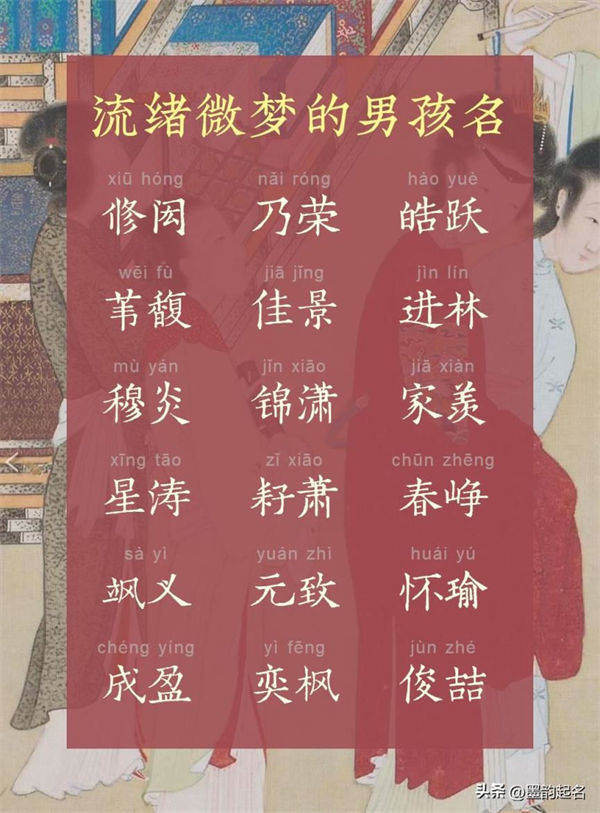 流绪微梦的男孩名
xiū hóng nǎi róng hào yuè
修闳 乃荣 皓跃
wěi fù jiā jǐng jìn lín
苇馥 佳景 进林
mù yán jǐn xiāo jiā xiàn
穆炎 锦潇 家羡
xīng tāo zǐ xiāo chūn zhēng
星涛 耔萧 春峥
sà yì yuán zhì huái yú
飒义 元致 怀瑜
chéng yíng yì fēng jùn zhé
成盈 奕枫 俊喆
头条 @墨韵起名